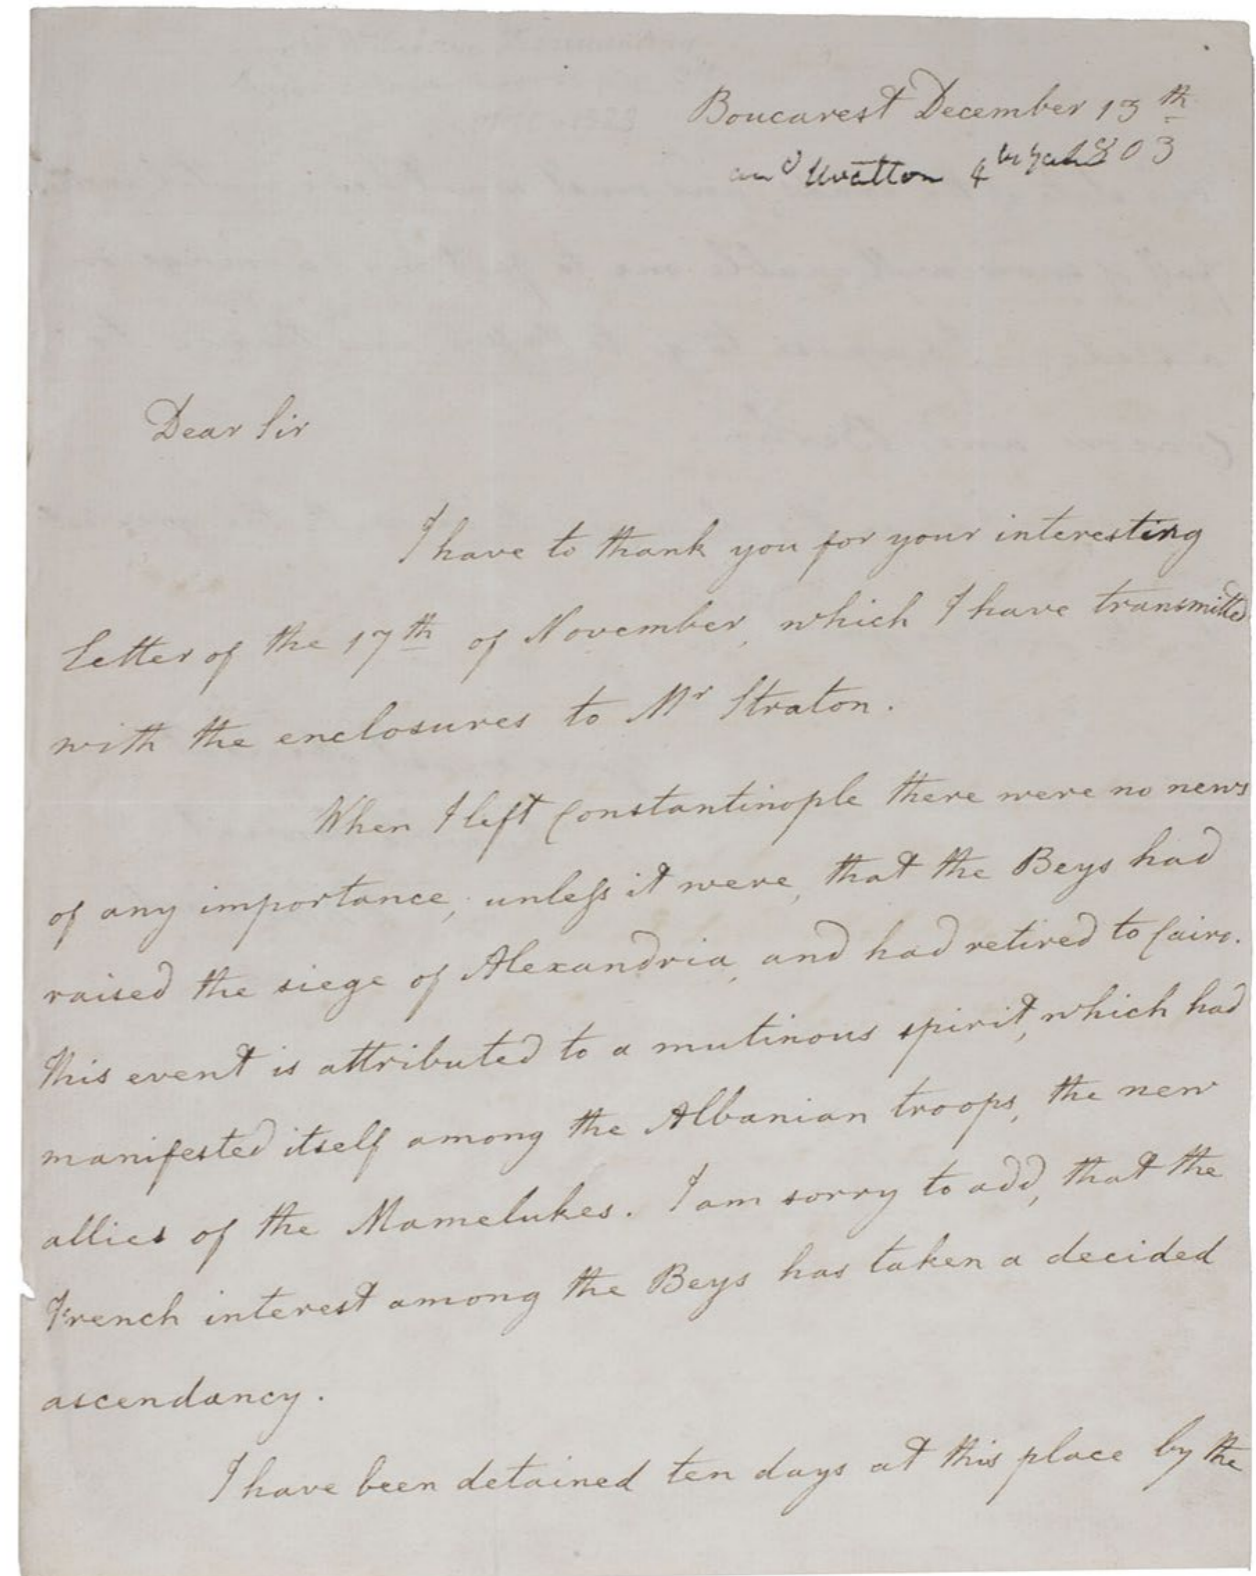 Boucarest December 13th
1803
Dear Sir
I have to thank you for your interesting
letter of the 17th of November, which I have transmitted
with the enclosures to Mr Straton.
When I left Constantinople there were no news
of any importance, unless it were, that the Beys had
raised the siege of Alexandria, and had retired to Cairo.
This event is attributed to a mutinous spirit, which had
manifested itself among the Albanian troops, the new
allies of the Mamelukes. I am sorry to add, that the
French interest among the Beys has taken a decided
ascendancy.
I have been detained ten days at this place by the